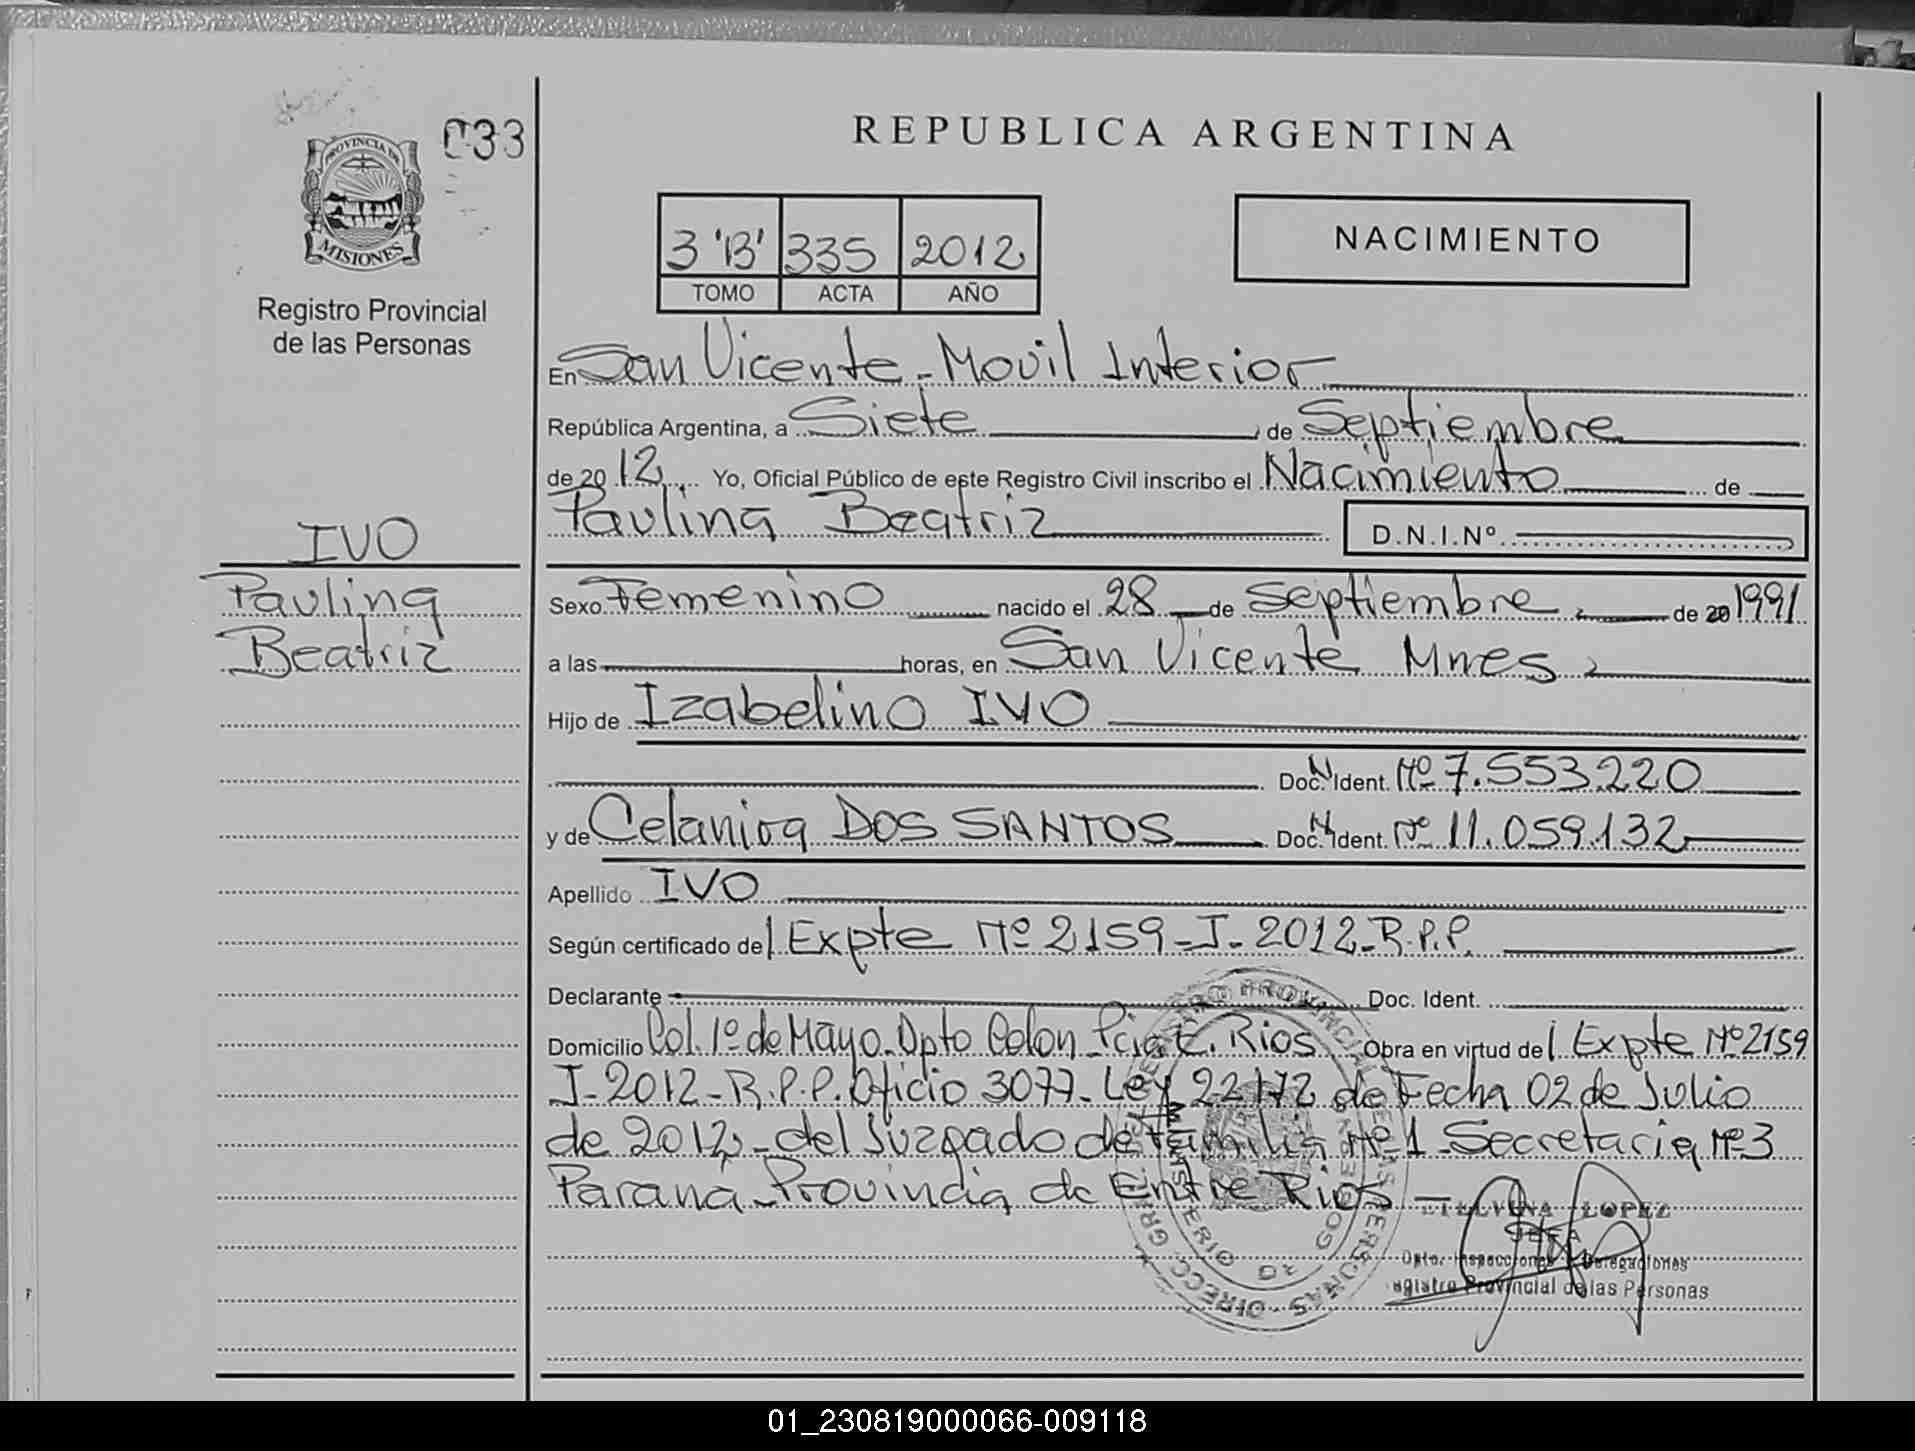 033
PROVINCIA DE
MISIONES
Registro Provincial
de las Personas
IVO
Paulina
Beatriz
REPUBLICA ARGENTINA
3 'B' 335 2012
TOMO ACTA AÑO
NACIMIENTO
En San Vicente - Movil Interior
República Argentina, a Siete de Septiembre
de 2012 Yo, Oficial Público de este Registro Civil inscribo el Nacimiento de
Paulina Beatriz D.N.I.Nº
Sexo Femenino nacido el 28 de Septiembre de 20 1991
a las horas, en San Vicente Mnes
Hijo de Izabelino IVO
Doc. N Ident. Nº 7.553.220
y de Celanira DOS SANTOS Doc. N Ident. Nº 11.059.132
Apellido IVO
Según certificado de / Expte Nº 2159-I-2012-R.P.P.
Declarante Doc. Ident.
Domicilio Col. 1º de Mayo. Dpto Colon Pcia E. Rios Obra en virtud de / Expte Nº 2159
I-2012-R.P.P. Oficio 3077-Ley 22172 de Fecha 02 de Julio
de 2012,-del Juzgado de Familia Nº 1-Secretaria Nº 3
Paraná-Provincia de Entre Rios-
ETELVINA LOPEZ
JEFA
Dpto. Inspecciones Delegaciones
Registro Provincial de las Personas
01_230819000066-009118